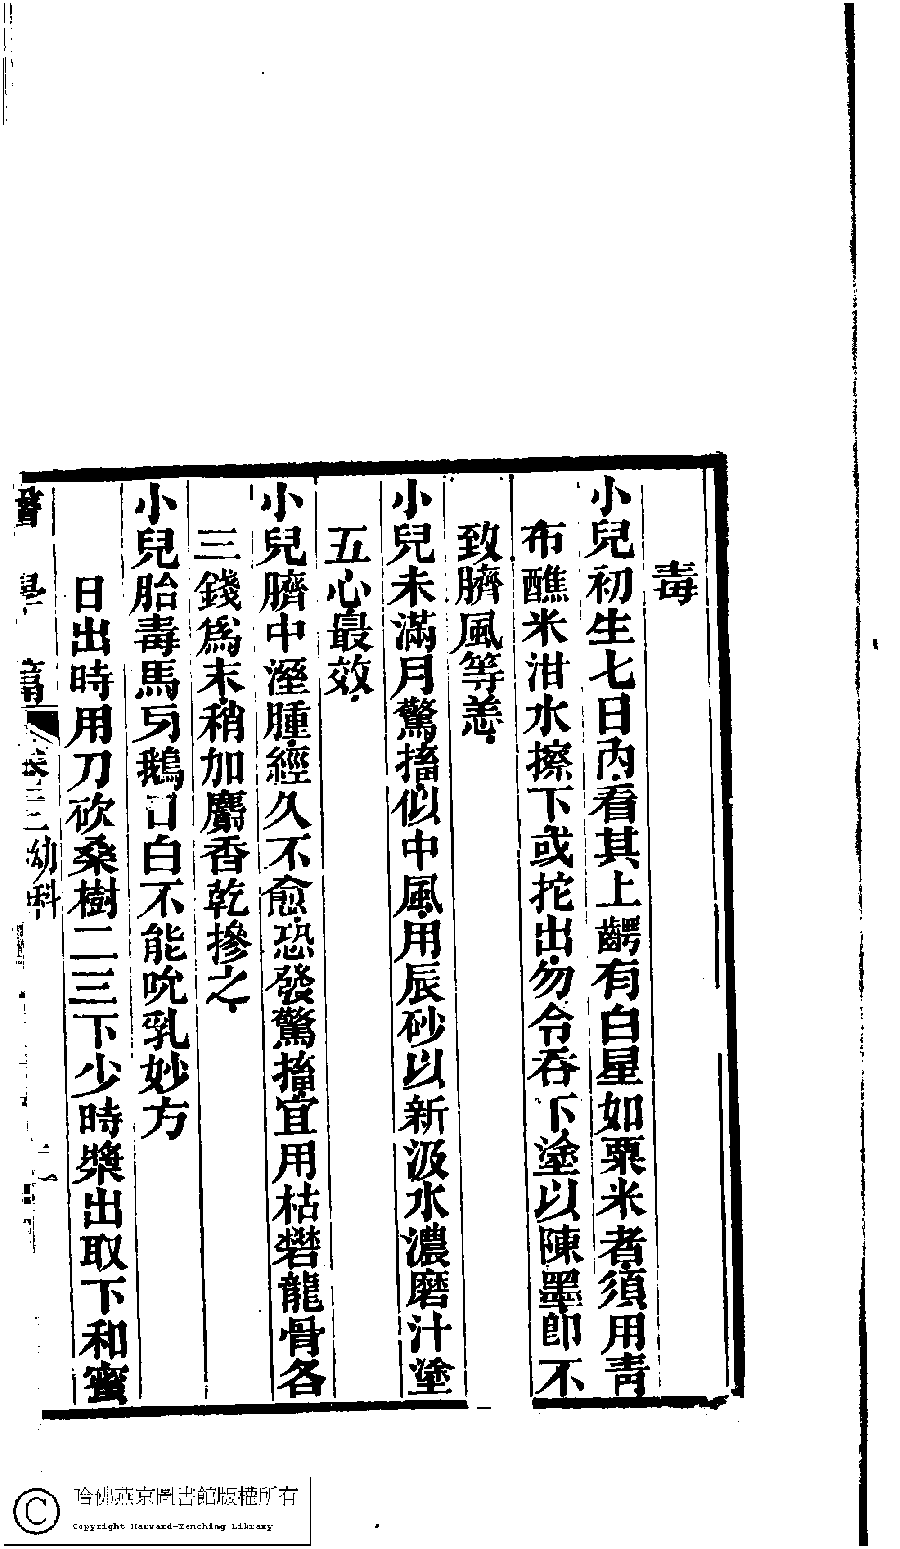 毒
小兒初生七日內看其上齶有白星如粟米者須用靑
布醮米泔水擦下或挖出勿令吞下塗以陳墨卽不
致臍風等恙
小兒未滿月驚搐似中風用辰砂以新汲水濃磨汁塗
五心最效
小兒臍中溼腫經久不愈恐發驚搐宜用枯礬龍骨各
三錢爲末稍加麝香乾摻之
小兒胎毒馬牙鵝口白不能吮乳妙方
日出時用刀砍桑樹二三下少時漿出取下和蜜
幼科
哈佛燕京圖書館版權所有
Copyright Harvard-Yenching Library